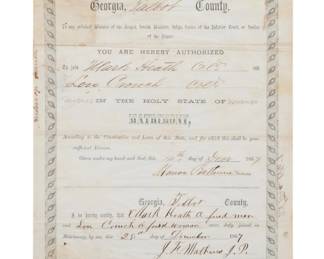 Georgia, Talbot County.
To any ordained Minister of the Gospel, Jewish Minister, Judge, Justice of the Inferior Court, or Justice
of the Peace:
YOU ARE HEREBY AUTHORIZED
To join Mark Heath Col'd and
Lou Crouch Col'd
IN THE HOLY STATE OF
MATRIMONY,
According to the Constitution and Laws of this State, and for which this shall be your
sufficient License.
Given under my hand and seal, this day of 7
Marion Bethune
Georgia, Talbot County.
I do hereby certify, that Mark Heath a freed man
and Lou Crouch a freed woman were duly joined in
Matrimony, by me, this 28 day of December 1867
J. F. Mathews J. P.